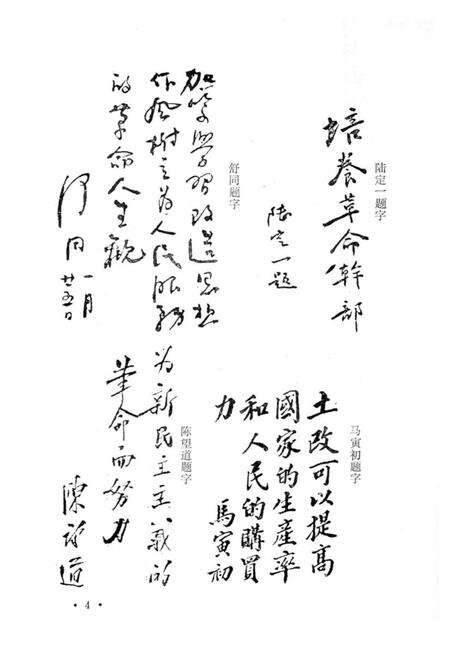 培養革命幹部
陆定一题字
陸定一題
加強學習改造思想
作風樹立為人民服務
的革命人生觀
舒同
一月
廿五日
舒同题字
土改可以提高
國家的生產率
和人民的購買
力
馬寅初
马寅初题字
为新民主主義的
革命而努力
陳望道
陈望道题字
• 4 •